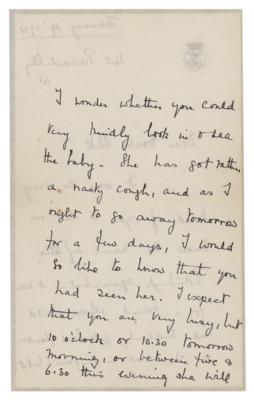 I wonder whether you could
very kindly look in & see
the baby. She has got rather
a nasty cough, and as I
ought to go away tomorrow
for a few days, I would
so like to know that you
had seen her. I expect
that you are very busy, but
10 o'clock or 10:30 tomorrow
morning, or between five &
6:30 this evening she will